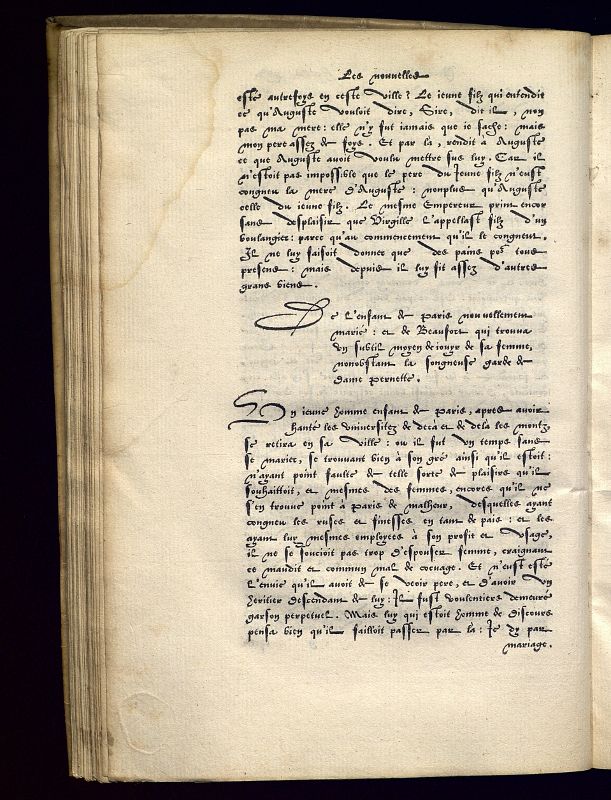 Les nouuelles
esté autresfoys en ceste ville? Le ieune filz qui entendit
ce qu'Auguste vouloit dire, Sire, dit il, non
pas ma mere: elle n'y fut iamais que ie sache: mais
mon pere assez de foys. Et par la, rendit à Auguste
ce que Auguste auoit voulu mettre sus luy. Car il
n'estoit pas impossible que le pere du Ieune filz n'eust
congneu la mere d'Auguste: nonplus qu'Auguste
celle du ieune filz. Le mesme Empereur print encor
sans desplaisir que Virgille l'appellast filz d'un
boulangier: parce qu'au commencement qu'il le congneut,
Il ne luy faisoit donner que des pains por tous
presens: mais depuis il luy fit assez d'autres
grans biens.
De l'enfant de Paris nouuellement
marié: et de Beaufort qui trouua
vn subtil moyen de iouyr de sa femme,
nonobstant la songneuse garde de
dame Pernette.
Un ieune homme enfant de Paris, apres auoir
hanté les Vniuersitez de deça et de dela les montz,
se retira en sa ville: ou il fut vn temps sans
se marier, se trouuant bien à son gré ainsi qu'il estoit:
n'ayant point faulte de telle sorte de plaisirs qu'il
souhaittoit, et mesmes des femmes, encores qu'il ne
s'en trouue point à Paris de malheur, desquelles ayant
congneu les ruses et finesses en tant de pais: et les
ayant luy mesmes employees à son profit et vsage,
il ne se soucioit pas trop d'espouser femme, craignant
ce maudit et commun mal de cocuage. Et n'eust esté
l'enuie qu'il auoit de se veoir pere, et d'auoir vn
heritier descendant de luy: Il fust voulentiers demeuré
garson perpetuel. Mais luy qui estoit homme de discours
pensa bien qu'il failloit passer par la: Ie dy par
mariage.